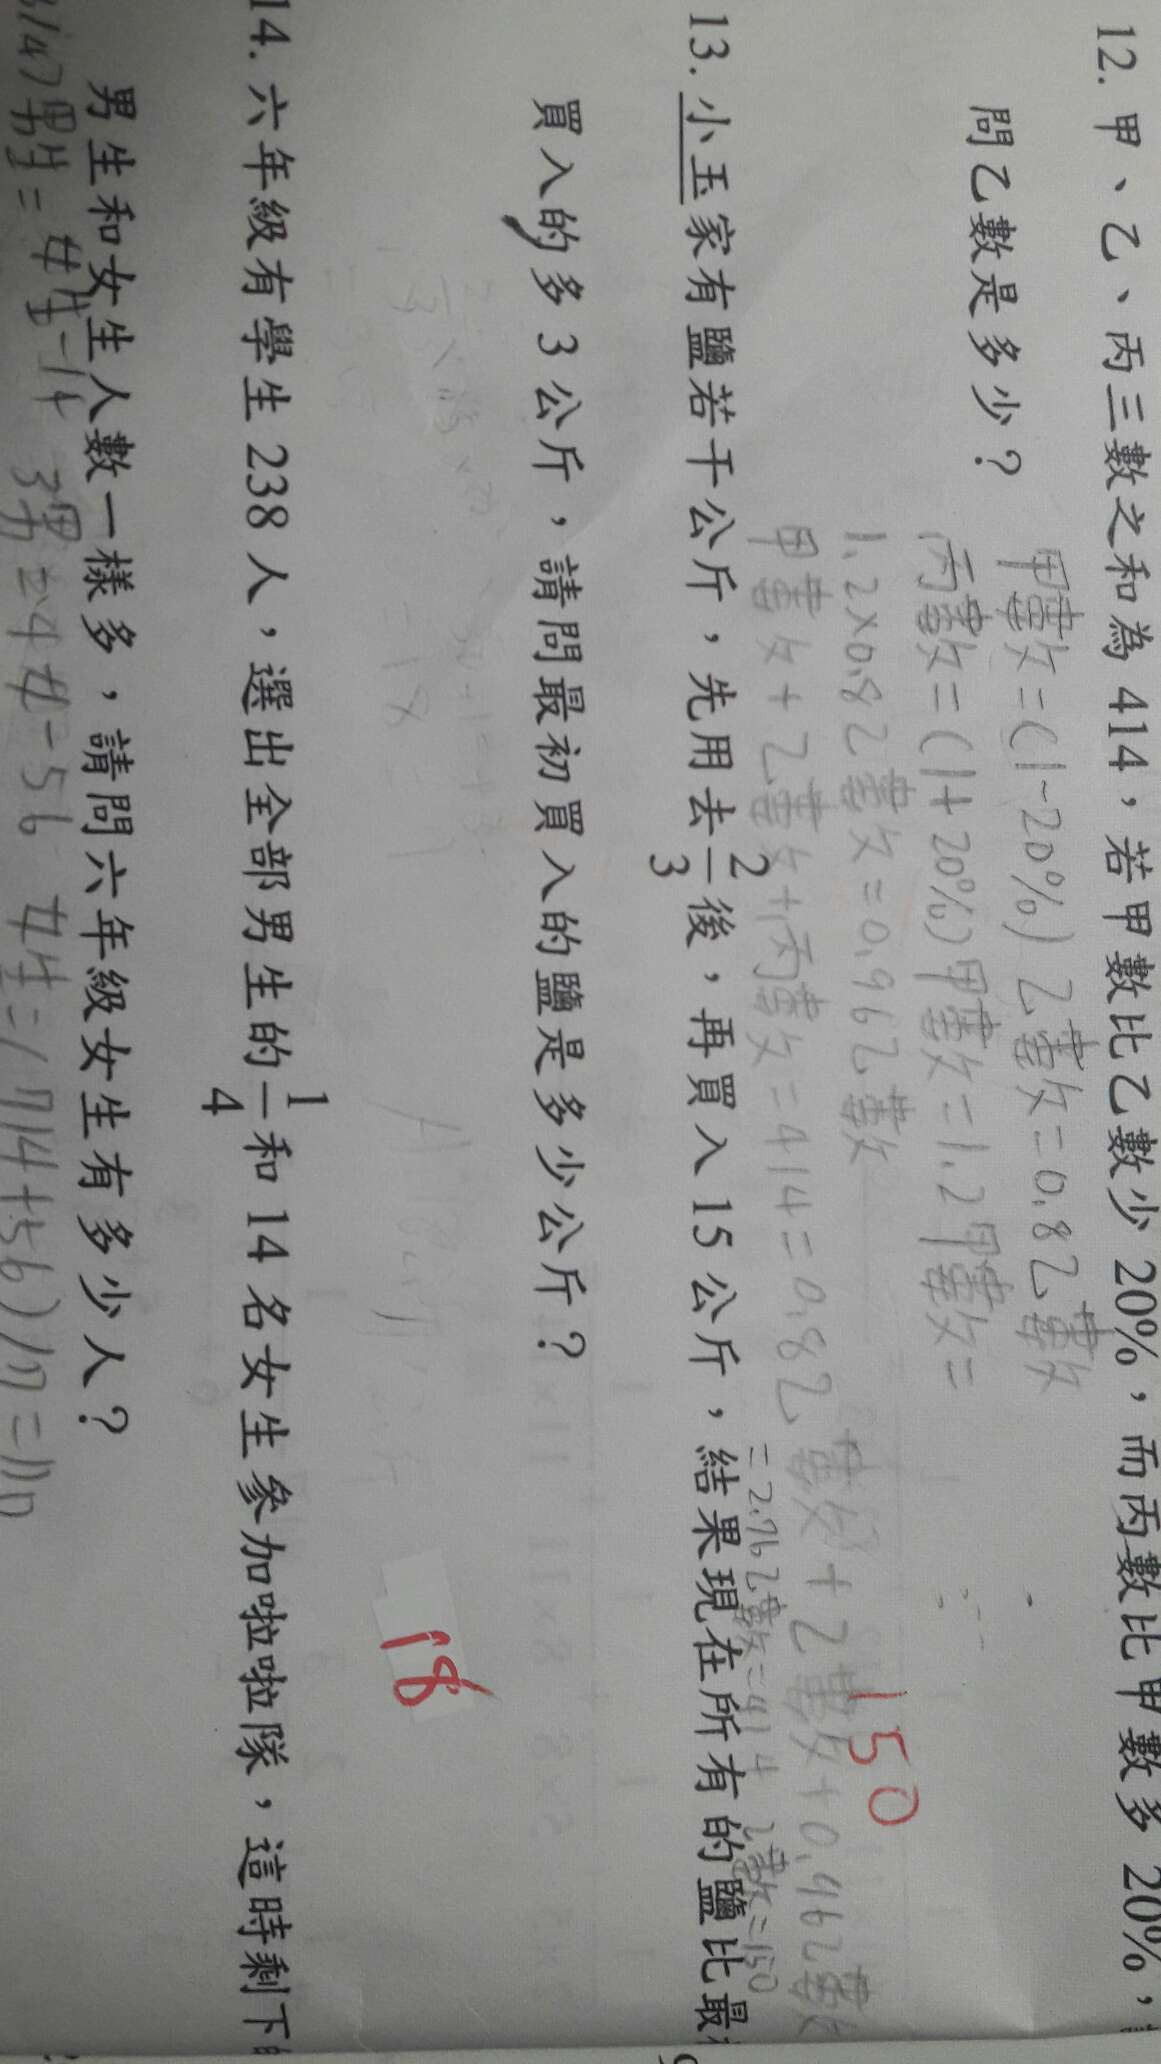 12. 甲、乙、丙三數之和為 414，若甲數比乙數少 20%，而丙數比甲數多 20%，
問乙數是多少？
甲數=(1-20%)乙數=0.8乙數
丙數=(1+20%)甲數=1.2甲數=
1.2×0.8乙數=0.96乙數
150
甲數+乙數+丙數=414=0.8乙數+乙數+0.96乙數
=2.76乙數=414 乙數=150
13. 小玉家有鹽若干公斤，先用去2/3後，再買入 15 公斤，結果現在所有的鹽比最
買入的多 3 公斤，請問最初買入的鹽是多少公斤？
18
14. 六年級有學生 238 人，選出全部男生的1/4和 14 名女生參加啦啦隊，這時剩下
男生和女生人數一樣多，請問六年級女生有多少人？
3/4男生=女生-14 3男=4女-56 女生=(714+56)/7=110